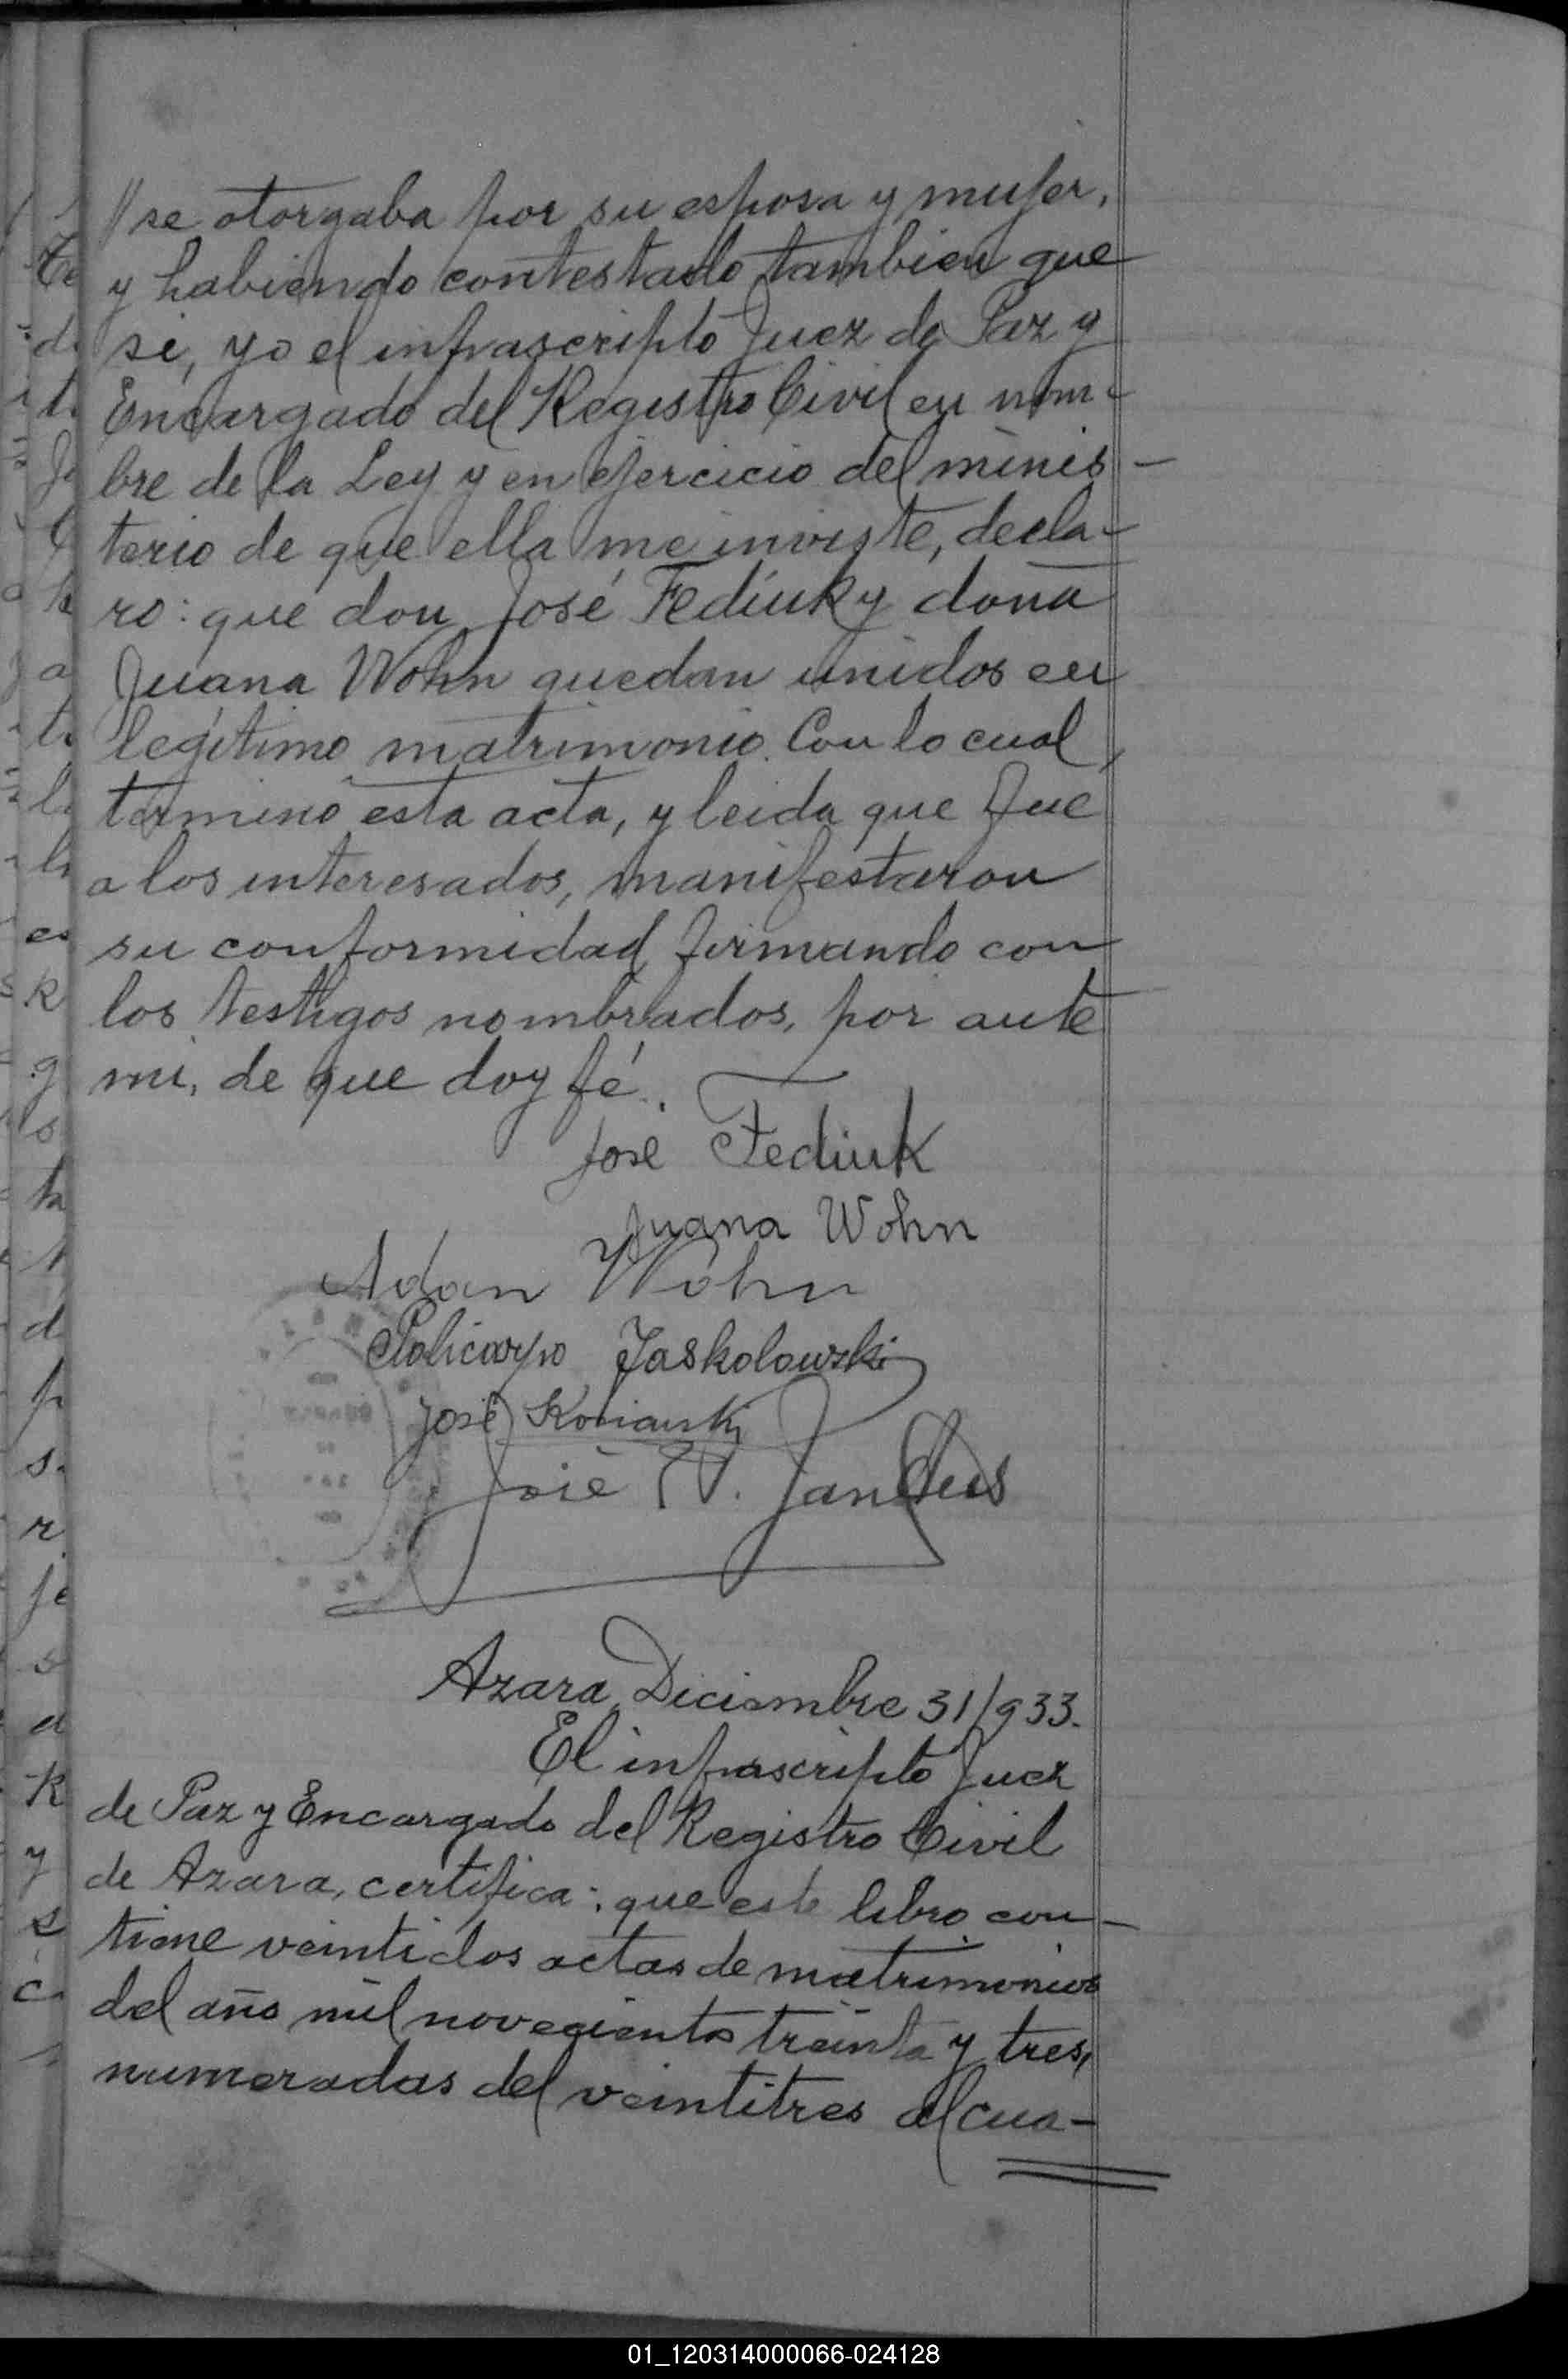 // se otorgaba por su esposa y mujer,
y habiendo contestado tambien que
si, yo el infrascripto Juez de Paz y
Encargado del Registro Civil en nom-
bre de la Ley y en ejercicio del minis-
terio de que ella me inviste, decla-
ro: que don José Fediuk y doña
Juana Wohn quedan unidos en
legítimo matrimonio. Con lo cual,
terminó esta acta, y leida que fue
a los interesados, manifestaron
su conformidad firmando con
los testigos nombrados, por ante
mi, de que doy fé.
José Fediuk
Juana Wohn
Adan Wohn
Policarpo Jaskolowski
José
José Jandus
Azara, Diciembre 31/933.
El infrascripto Juez
de Paz y Encargado del Registro Civil
de Azara, certifica: que este libro con-
tiene veintidos actas de matrimonios
del año mil novecientos treinta y tres,
numeradas del veintitres al cua-
01_120314000066-024128